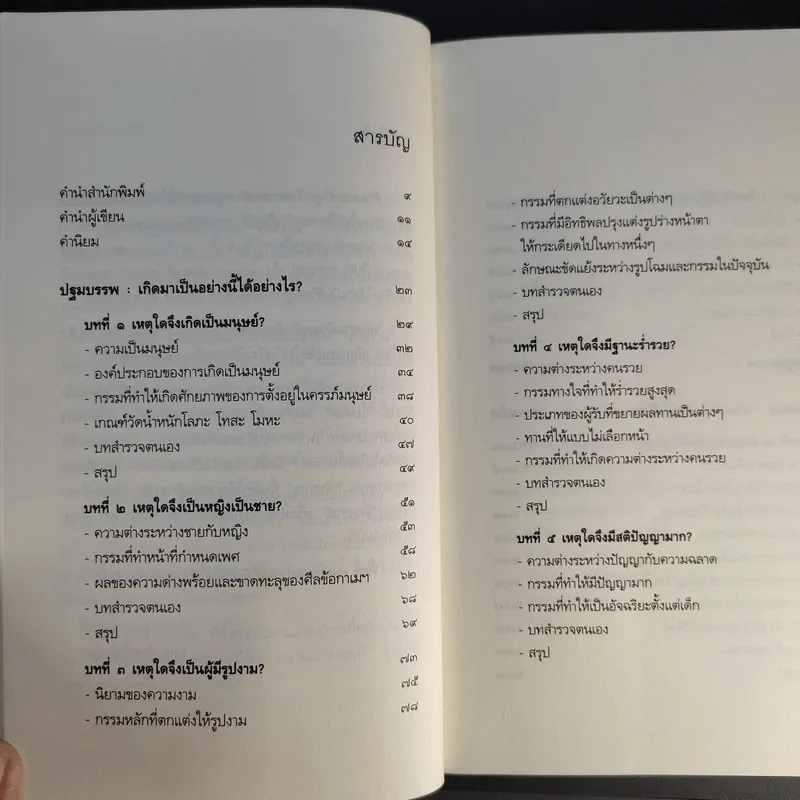 สารบัญ
คำนำสำนักพิมพ์ ๙
คำนำผู้เขียน ๑๑
คำนิยม ๑๔
ปฐมบรรพ : เกิดมาเป็นอย่างนี้ได้อย่างไร? ๒๓
บทที่ ๑ เหตุใดจึงเกิดเป็นมนุษย์? ๒๙
- ความเป็นมนุษย์ ๓๒
- องค์ประกอบของการเกิดเป็นมนุษย์ ๓๔
- กรรมที่ทำให้เกิดศักยภาพของการตั้งอยู่ในครรภ์มนุษย์ ๓๘
- เกณฑ์วัดน้ำหนักโลภะ โทสะ โมหะ ๔๐
- บทสำรวจตนเอง ๔๗
- สรุป ๔๙
บทที่ ๒ เหตุใดจึงเป็นหญิงเป็นชาย? ๕๑
- ความต่างระหว่างชายกับหญิง ๕๓
- กรรมที่ทำหน้าที่กำหนดเพศ ๕๘
- ผลของความด่างพร้อยและขาดทะลุของศีลข้อกาเมฯ ๖๒
- บทสำรวจตนเอง ๖๘
- สรุป ๖๙
บทที่ ๓ เหตุใดจึงเป็นผู้มีรูปงาม? ๗๓
- นิยามของความงาม ๗๕
- กรรมหลักที่ตกแต่งให้รูปงาม ๗๘
- กรรมที่ตกแต่งอวัยวะเป็นต่างๆ
- กรรมที่มีอิทธิพลปรุงแต่งรูปร่างหน้าตา
ให้กระเดียดไปในทางหนึ่งๆ
- ลักษณะขัดแย้งระหว่างรูปโฉมและกรรมในปัจจุบัน
- บทสำรวจตนเอง
- สรุป
บทที่ ๔ เหตุใดจึงมีฐานะร่ำรวย?
- ความต่างระหว่างคนรวย
- กรรมทางใจที่ทำให้ร่ำรวยสูงสุด
- ประเภทของผู้รับที่ขยายผลทานเป็นต่างๆ
- ทานที่ให้แบบไม่เลือกหน้า
- กรรมที่ทำให้เกิดความต่างระหว่างคนรวย
- บทสำรวจตนเอง
- สรุป
บทที่ ๕ เหตุใดจึงมีสติปัญญามาก?
- ความต่างระหว่างปัญญากับความฉลาด
- กรรมที่ทำให้มีปัญญามาก
- กรรมที่ทำให้เป็นอัจฉริยะตั้งแต่เด็ก
- บทสำรวจตนเอง
- สรุป